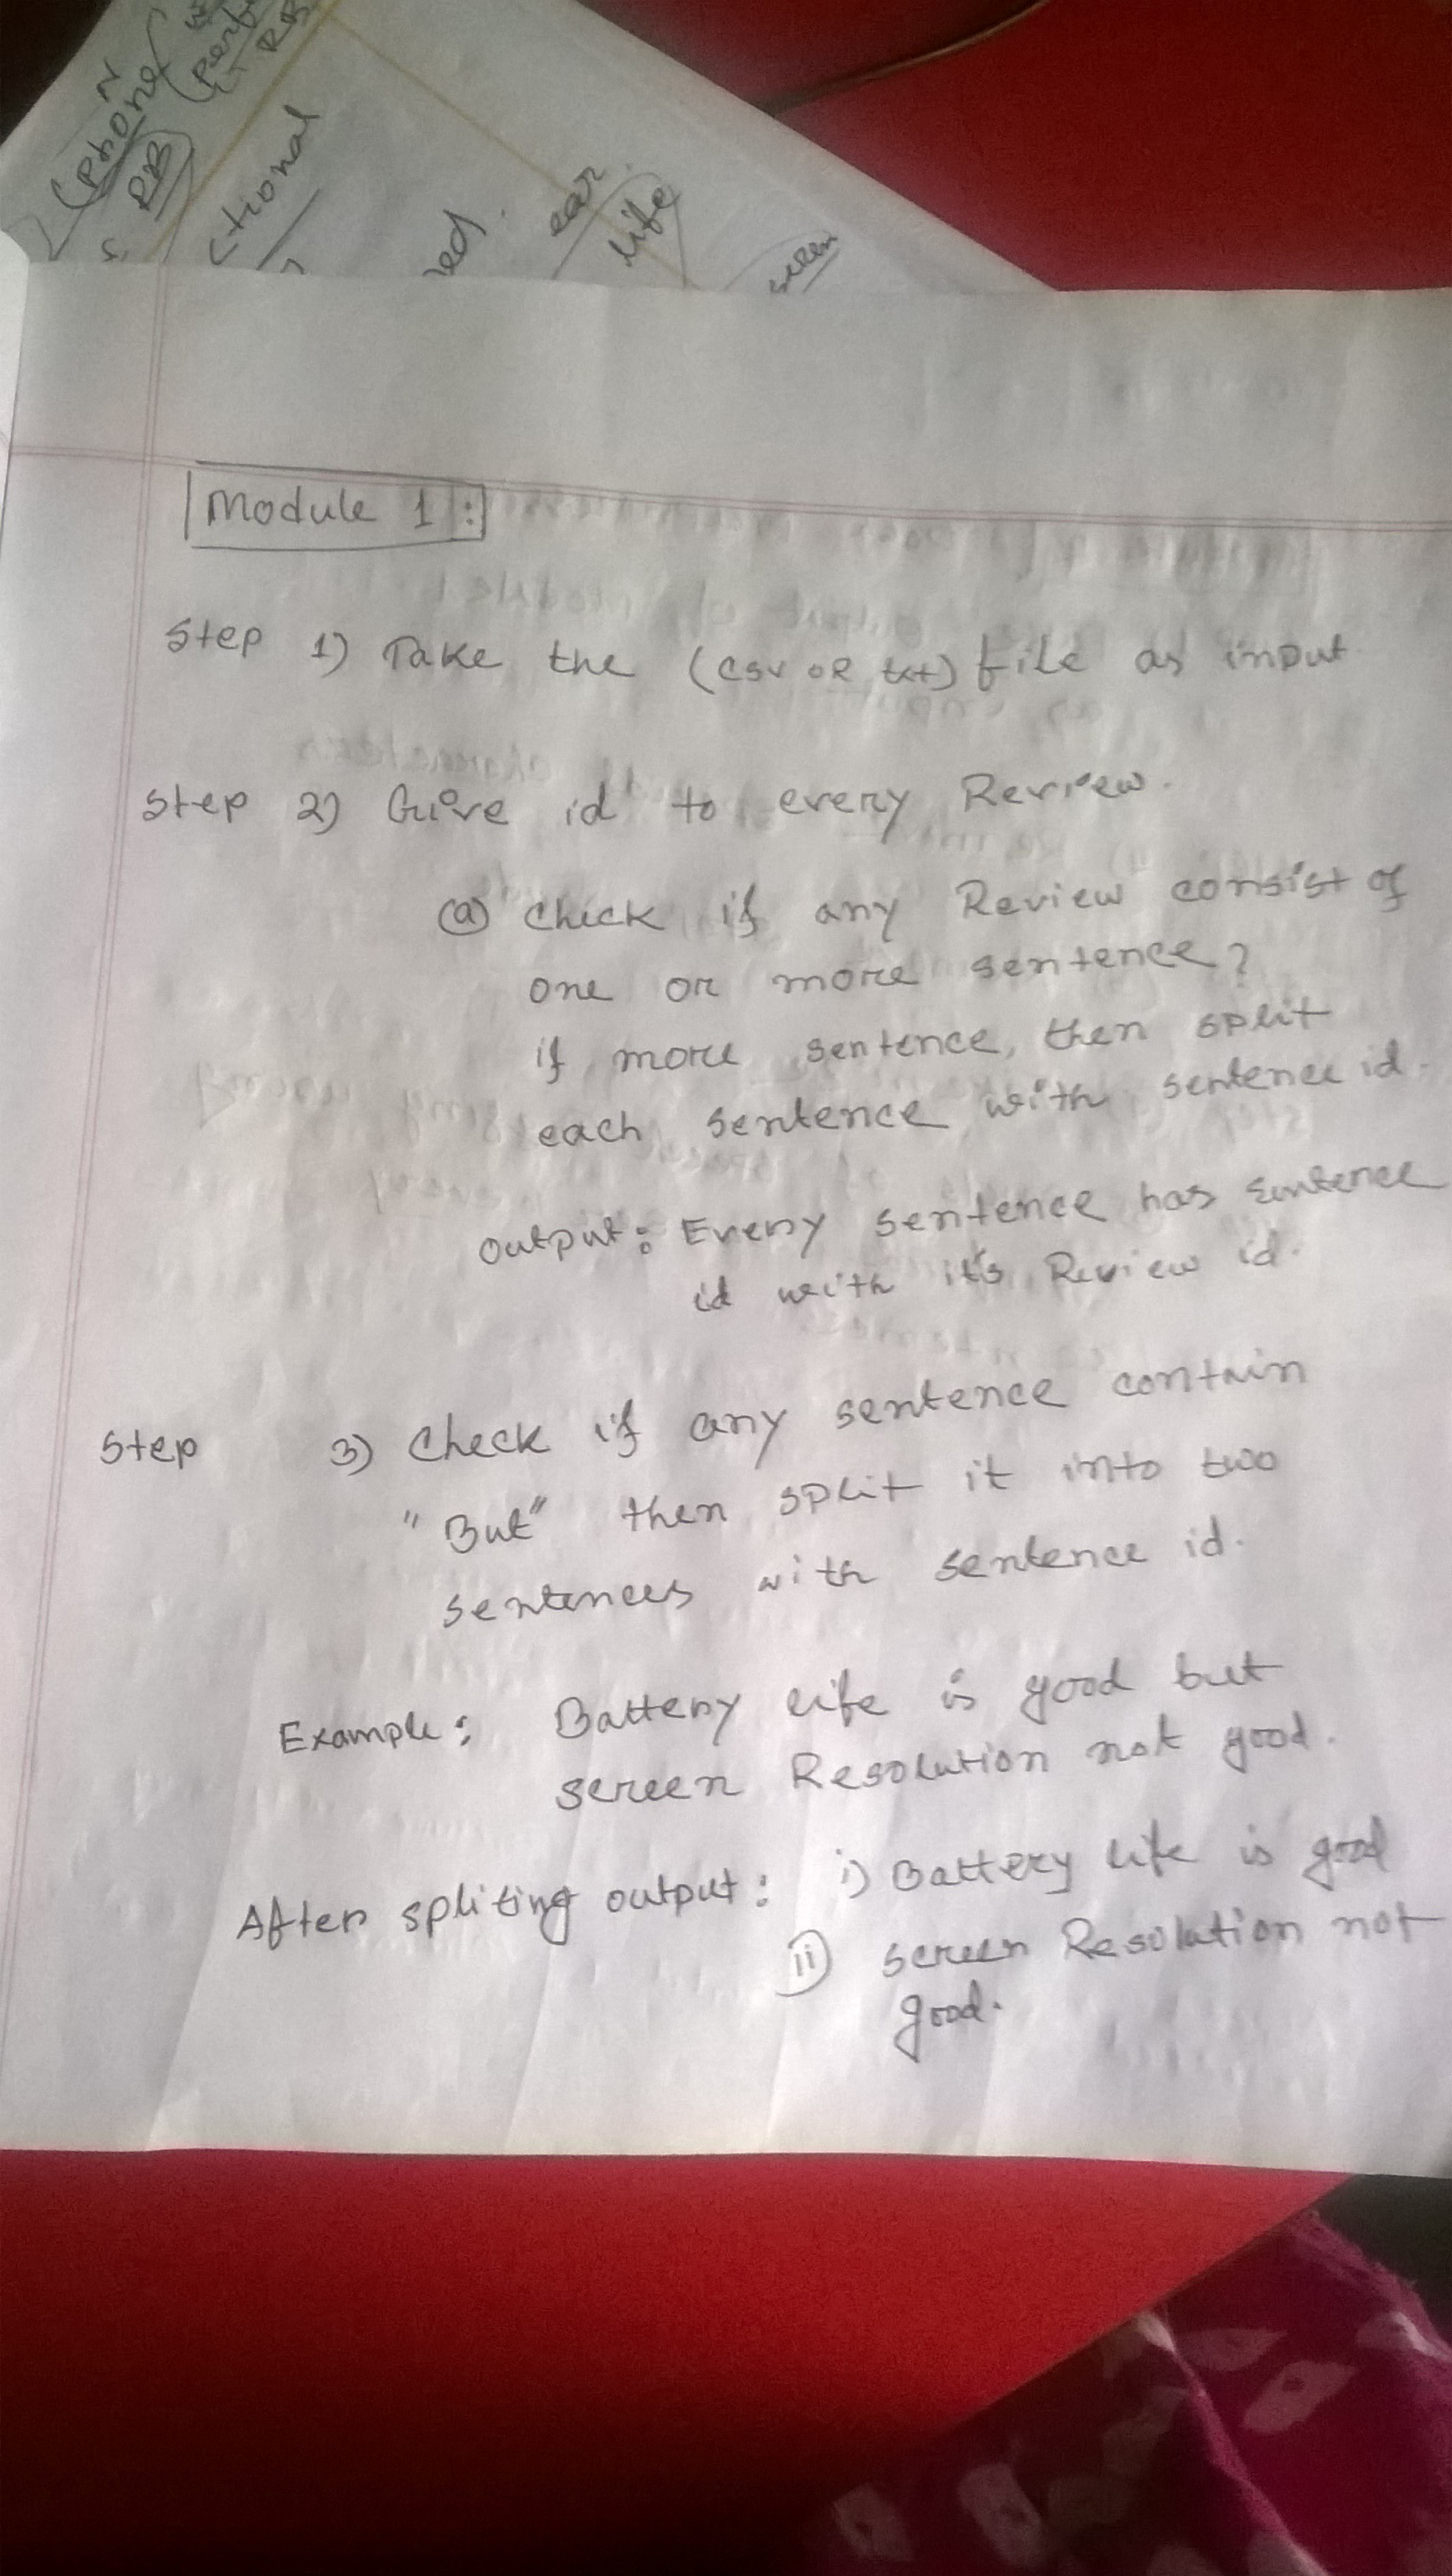 N
(phone
RB
RB
ctional
ear
life
Module 1:
Step 1) Take the (csv OR txt) file as input.
Step 2) Give id to every Review.
(a) Check if any Review consist of
one or more sentence?
if more sentence, then split
each sentence with sentence id.
Output: Every sentence has sentence
id with it's Review id.
Step 3) Check if any sentence contain
"But" then split it into two
sentences with sentence id.
Example: Battery life is good but
screen Resolution not good.
After spliting output: i) Battery life is good
ii) screen Resolution not
good.